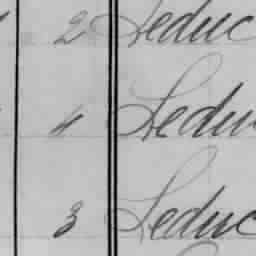 2 Leduc
4 Leduc
3 Leduc